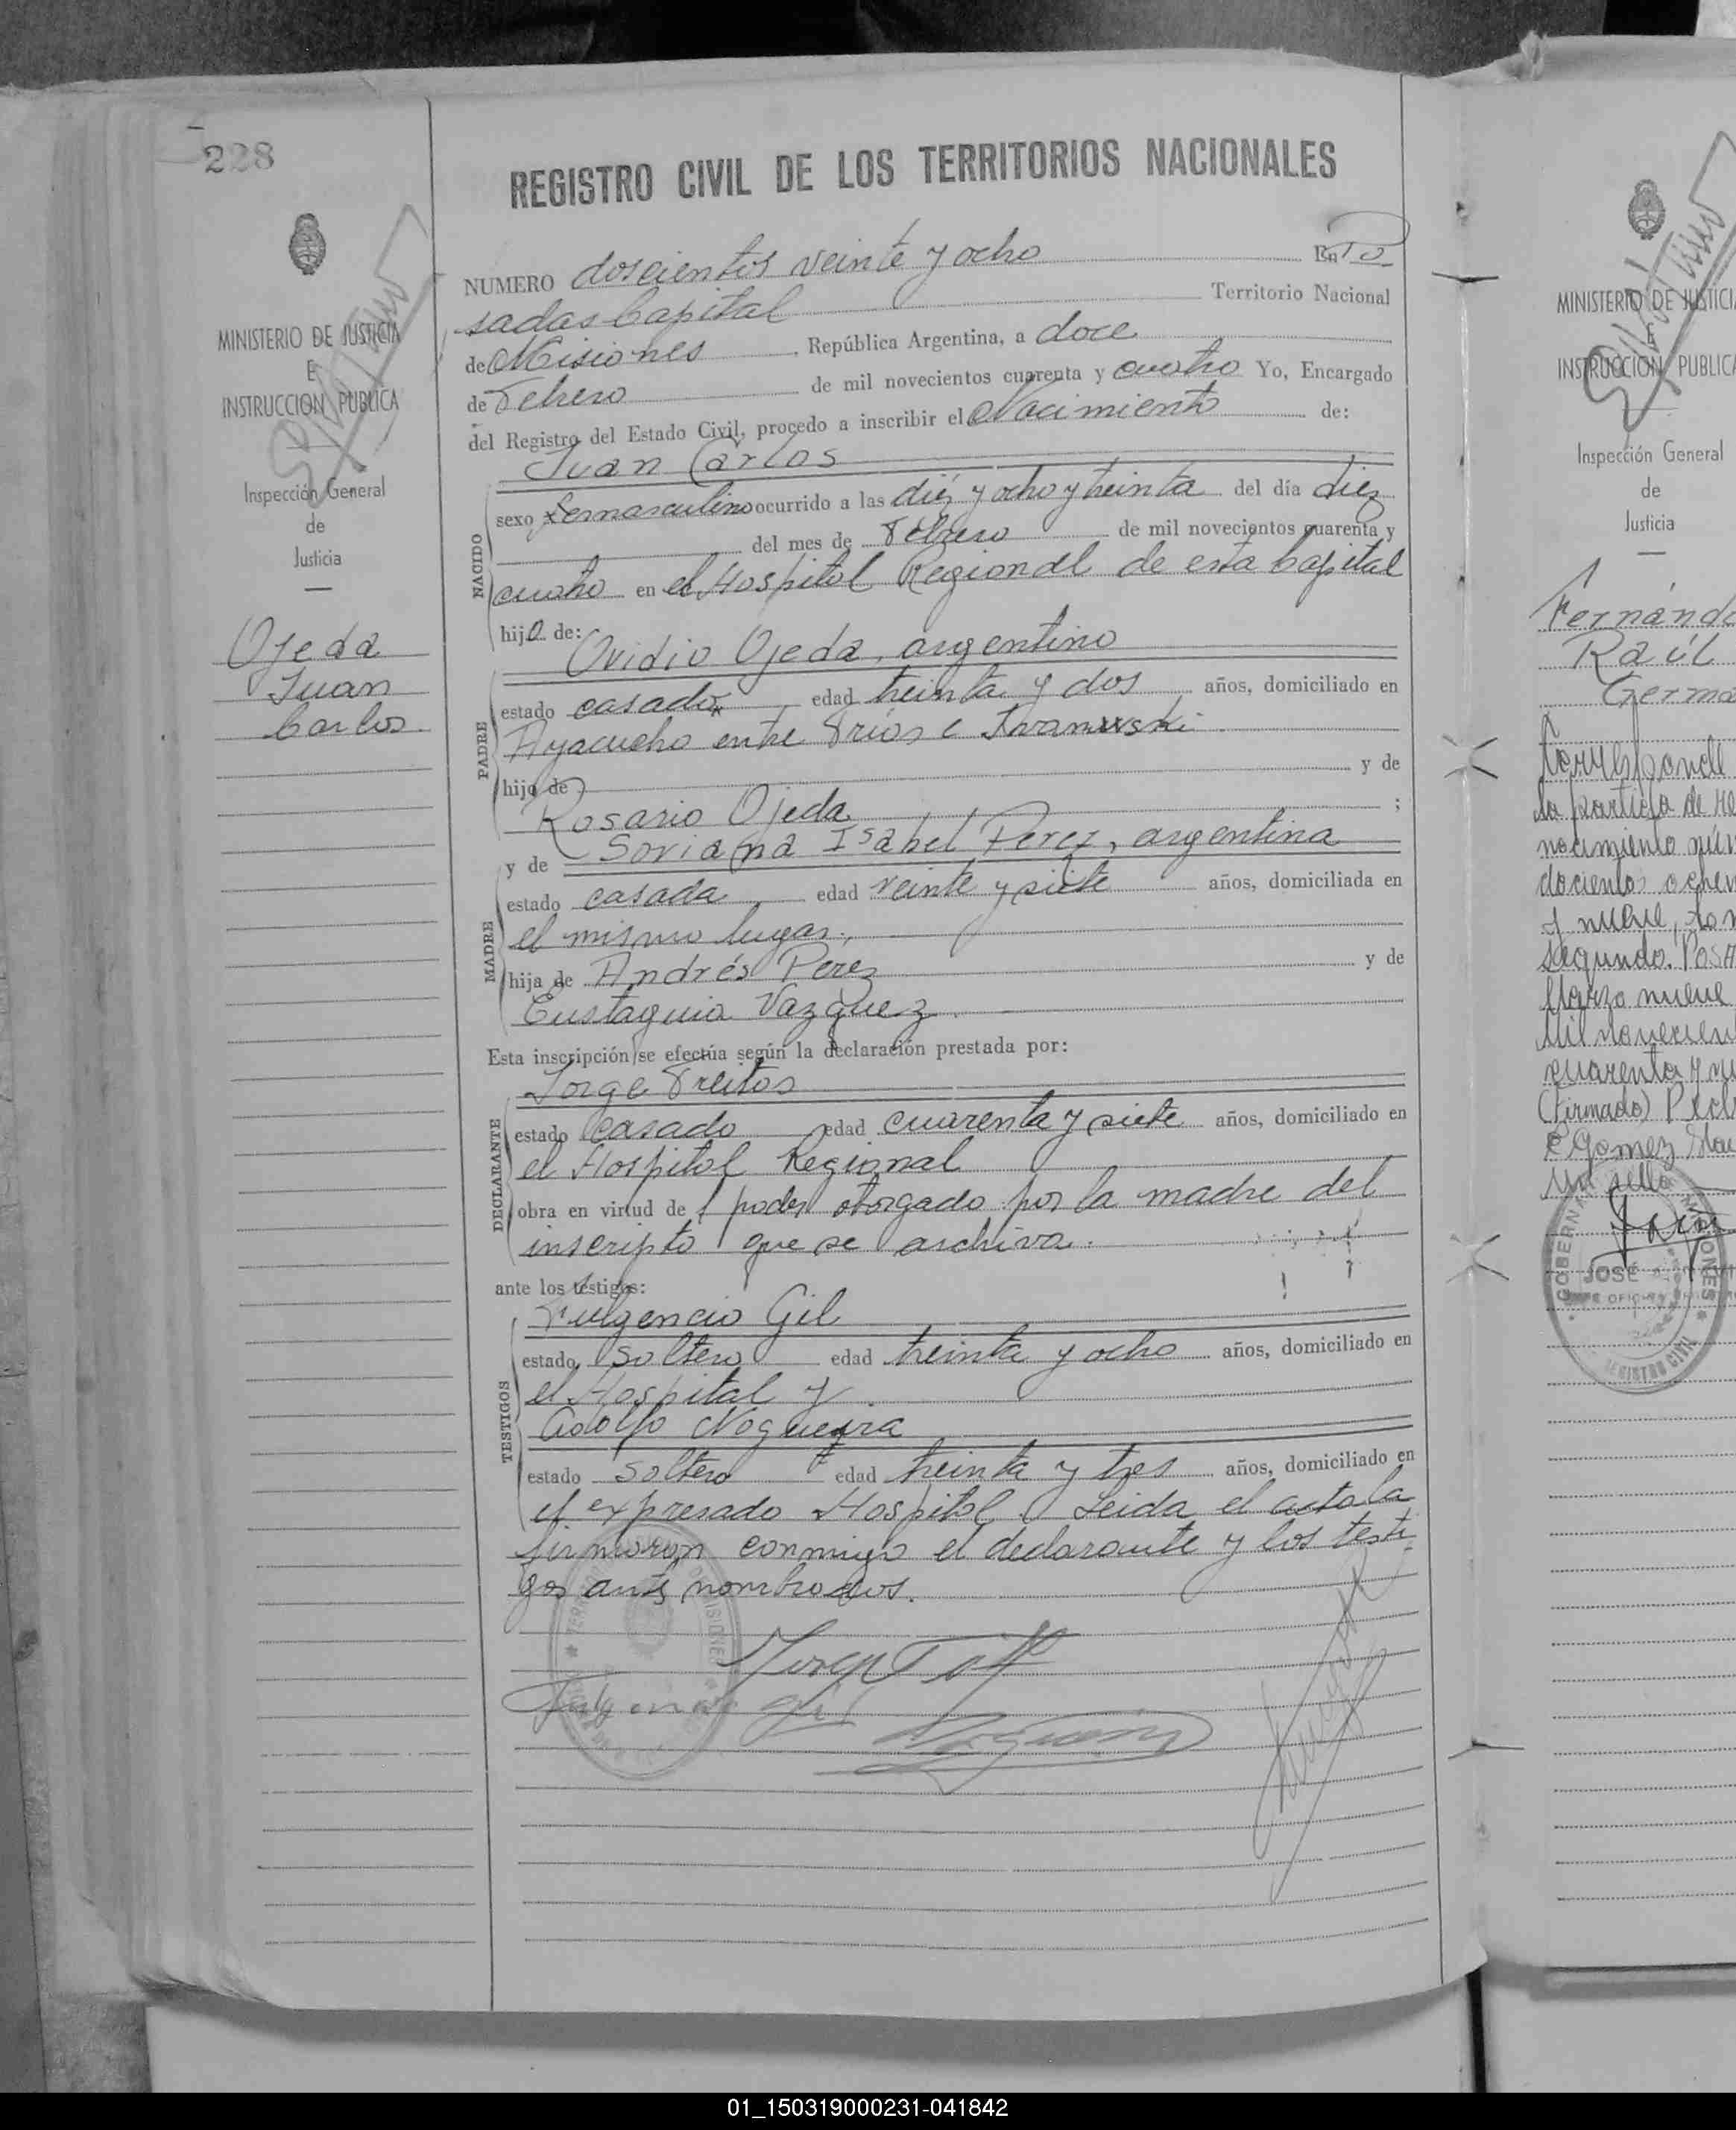 228
REGISTRO CIVIL DE LOS TERRITORIOS NACIONALES
NUMERO doscientos veinte y ocho En Po
sadas Capital Territorio Nacional
de Misiones, República Argentina, a doce
de Febrero de mil novecientos cuarenta y cuatro Yo, Encargado
del Registro del Estado Civil, procedo a inscribir el Nacimiento de:
Juan Carlos
NACIDO
sexo masculino ocurrido a las diez y ocho y treinta del día diez
del mes de Febrero de mil novecientos cuarenta y
cuatro en el Hospital Regional de esta Capital
hijo de:
Ovidio Ojeda, argentino
PADRE
estado casado edad treinta y dos años, domiciliado en
Ayacucho entre Frías e
hijo de y de
Rosario Ojeda ;
y de Soriana Isabel Perez, argentina
MADRE
estado casada edad veinte y siete años, domiciliada en
el mismo lugar,
hija de Andrés Perez y de
Eustaquia Vazquez.
Esta inscripción se efectúa según la declaración prestada por:
Jorge Freitos
DECLARANTE
estado casado edad cuarenta y siete años, domiciliado en
el Hospital Regional
obra en virtud de poder otorgado por la madre del
inscripto que se archiva.
ante los testigos:
Fulgencio Gil
TESTIGOS
estado soltero edad treinta y ocho años, domiciliado en
el Hospital y
Adolfo Nogueira
estado soltero edad treinta y tres años, domiciliado en
el expresado Hospital. Leida el acta la
firmaron conmigo el declarante y los testi-
gos ante nombrados.
MINISTERIO DE JUSTICIA
E
INSTRUCCION PUBLICA
Inspección General
de
Justicia
Ojeda
Juan
Carlos
MINISTERIO DE JUSTICI
E
INSTRUCCION PUBLICA
Inspección General
de
Justicia
Fernánd
Raúl
Germá
Corresponde
la partida de
nacimiento
y nueve, to
segundo. POSA
Marzo nueve
Mil novecien
cuarenta y nu
(Firmado)
Gomez
un sello
JOSÉ
REGISTRO CIVIL
01_150319000231-041842